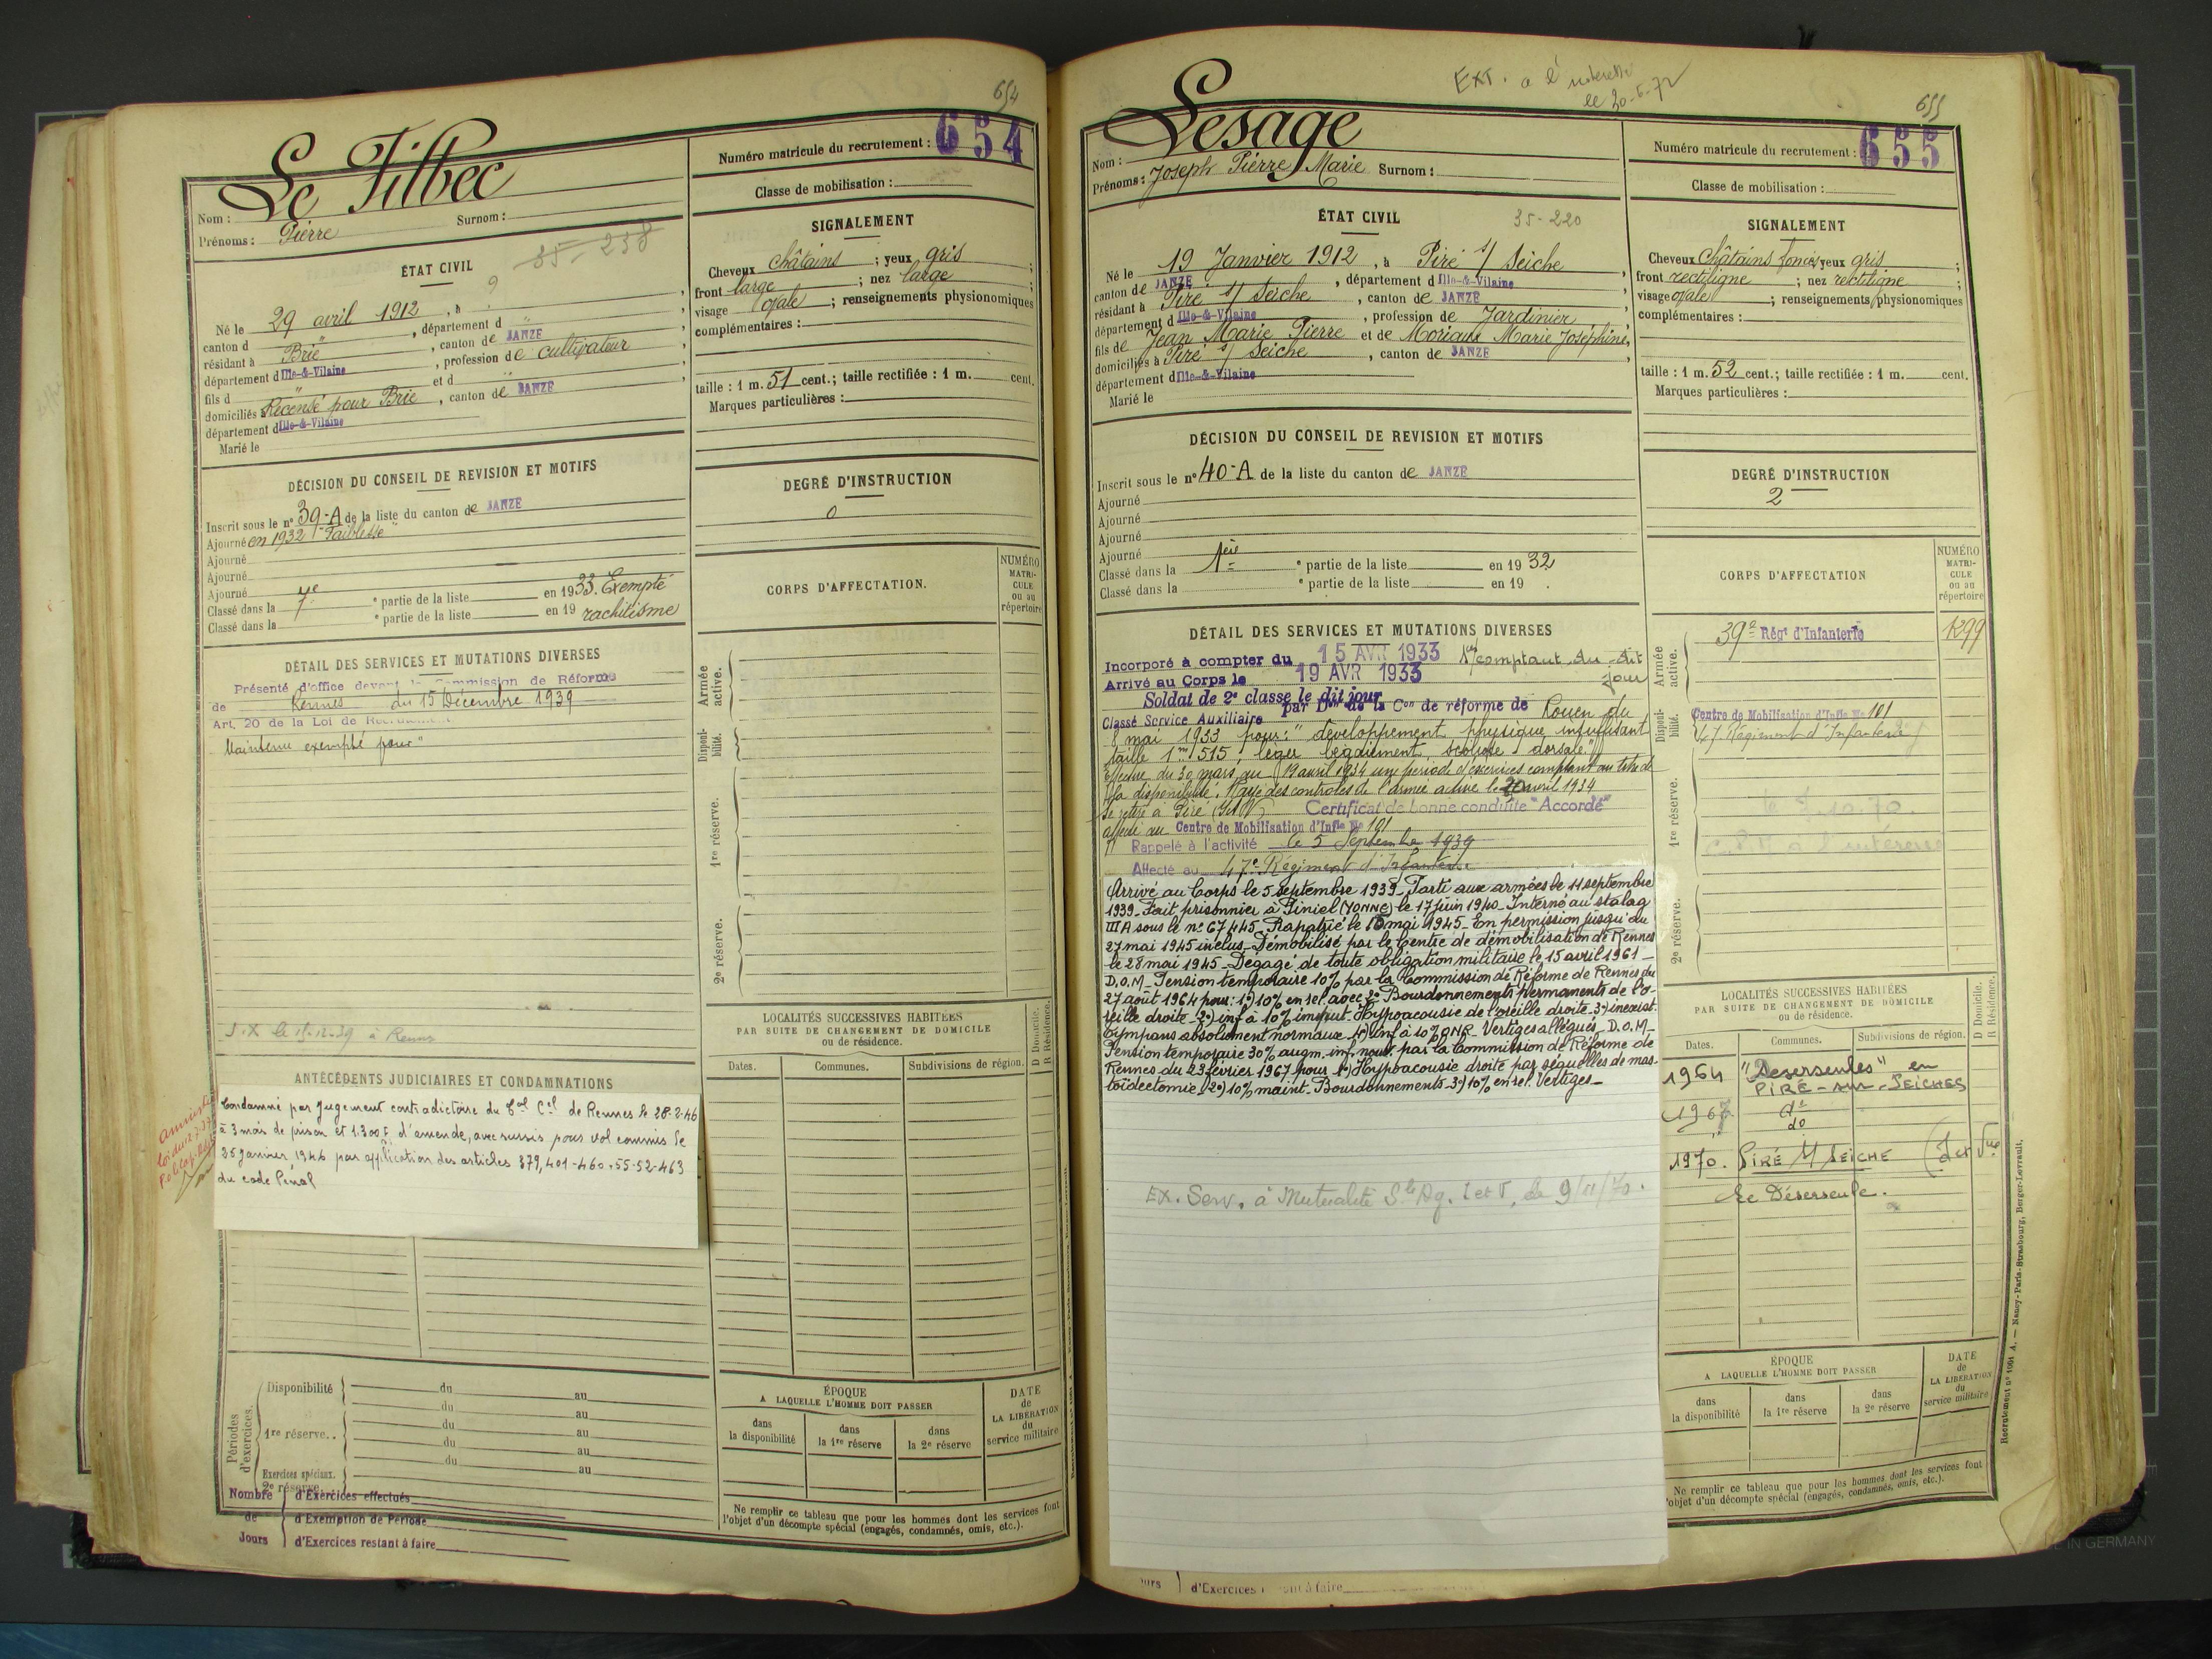 654
Numéro matricule du recrutement : 654
Classe de mobilisation :
Nom : Le Filbec
Prénoms : Pierre Surnom :
ÉTAT CIVIL
35-238
Né le 29 avril 1912, à
canton d " , département d "
résidant à Brie , canton de JANZE
département d Ille-&-Vilaine , profession de cultivateur
fils d " et d "
domiciliés Recensé pour Brie , canton de JANZE
département d Ille-&-Vilaine
Marié le
SIGNALEMENT
Cheveux châtains ; yeux gris ;
front large ; nez large ;
visage ovale ; renseignements physionomiques
complémentaires :
taille : 1 m. 51 cent.; taille rectifiée : 1 m. cent.
Marques particulières :
DÉCISION DU CONSEIL DE REVISION ET MOTIFS
Inscrit sous le n° 39-A de la liste du canton de JANZE
Ajourné en 1932 "Faiblesse"
Ajourné
Ajourné
Ajourné
Classé dans la 7e ° partie de la liste en 1933. Exempté
Classé dans la ° partie de la liste en 19 rachitisme
DEGRÉ D'INSTRUCTION
0
CORPS D'AFFECTATION.
NUMÉRO
MATRI-
CULE
ou au
répertoire
Armée active.
Disponi-bilité.
1re réserve.
2e réserve.
DÉTAIL DES SERVICES ET MUTATIONS DIVERSES
Présenté d'office devant la Commission de Réforme
de Rennes du 15 Décembre 1939
Art. 20 de la Loi de Recrutement
Maintenu exempté pour "
le 15-12-39 à Rennes
ANTÉCÉDENTS JUDICIAIRES ET CONDAMNATIONS
Condamné par jugement contradictoire du Cal Cel de Rennes le 28-2-46
à 3 mois de prison et 1.300 F d'amende, avec sursis pour vol commis le
25 janvier 1946 par application des articles 379, 401-460-55-52-463
du code Pénal
LOCALITÉS SUCCESSIVES HABITÉES
PAR SUITE DE CHANGEMENT DE DOMICILE
ou de résidence.
D Domicile.
R Résidence.
Dates. Communes. Subdivisions de région.
Périodes d'exercices.
Disponibilité du au
du au
1re réserve.. du au
du au
Exercices spéciaux. du au
2e réserve.
Nombre de Jours
d'Exercices effectués
d'Exemption de Période
d'Exercices restant à faire
ÉPOQUE
A LAQUELLE L'HOMME DOIT PASSER
dans la disponibilité
dans la 1re réserve
dans la 2e réserve
DATE
de
LA LIBÉRATION
du
service militaire
Ne remplir ce tableau que pour les hommes dont les services font
l'objet d'un décompte spécial (engagés, condamnés, omis, etc.).
EXT. a l'
le 30-5-72
655
Numéro matricule du recrutement : 655
Classe de mobilisation :
Nom : Lesage
Prénoms : Joseph Pierre Marie Surnom :
ÉTAT CIVIL
35-220
Né le 19 Janvier 1912 , à Piré s/ Seiche ,
canton de JANZE , département d Ille-&-Vilaine
résidant à Piré s/ Seiche , canton de JANZE
département d Ille-&-Vilaine , profession de Jardinier ,
fils de Jean Marie Pierre et de Moriaux Marie Joséphine,
domiciliés à Piré s/ Seiche , canton de JANZE
département d Ille-&-Vilaine
Marié le
SIGNALEMENT
Cheveux châtains foncés yeux gris ;
front rectiligne ; nez rectiligne ;
visage ovale ; renseignements physionomiques
complémentaires :
taille : 1 m. 52 cent.; taille rectifiée : 1 m. cent.
Marques particulières :
DÉCISION DU CONSEIL DE REVISION ET MOTIFS
Inscrit sous le n° 40-A de la liste du canton de JANZE
Ajourné
Ajourné
Ajourné
Ajourné
Classé dans la 1ère ° partie de la liste en 1932
Classé dans la ° partie de la liste en 19 .
DEGRÉ D'INSTRUCTION
2
CORPS D'AFFECTATION
NUMÉRO
MATRI-
CULE
ou au
répertoire
Armée active.
39e Régt d'Infanterie 1299
Disponi-bilité.
Centre de Mobilisation d'Infie No 101
47 Régiment d'Infanterie
1re réserve.
2e réserve.
DÉTAIL DES SERVICES ET MUTATIONS DIVERSES
Incorporé à compter du 15 AVR 1933 comptant du dit
Arrivé au Corps le 19 AVR 1933 jour
Soldat de 2e classe le dit jour
Classé Service Auxiliaire par Don de la Con de réforme de Rouen du
8 mai 1933 pour : "développement physique insuffisant
taille 1m 515, léger bégaiement, scoliose dorsale."
Effectue du 30 mars au 19 avril 1934 une période d'exercices comptant au titre de
la disponibilité. Rayé des contrôles de l'armée active le 20 avril 1934
Se retire à Piré (I&V) Certificat de bonne conduite "Accordé"
affecté au Centre de Mobilisation d'Infie No 101
Rappelé à l'activité le 5 Septembre 1939
Affecté au 47e Régiment d'Infanterie
Arrivé au Corps le 5 septembre 1939_Parti aux armées le 11 septembre
1939_Fait prisonnier à Finiel (YONNE) le 17 juin 1940_Interné au stalag
III A sous le n° 67445_Rapatrié le mai 1945_En permission jusqu'au
27 mai 1945 inclus_Démobilisé par le Centre de démobilisation de Rennes
le 28 mai 1945_Dégagé de toute obligation militaire le 15 avril 1961_
D.O.M_Pension temporaire 10% par la Commission de Réforme de Rennes du
27 août 1964 pour : 1°) 10% en rel. avec 2° Bourdonnements permanents de l'o-
reille droite_2°) inf à 10% imput. Hypoacousie de l'oreille droite_3°) inexist.
Tympans absolument normaux_4°) inf à 10% ONR_Vertiges allégués_D.O.M_
Pension temporaire 30% augm. inf. nouv. par la Commission de Réforme de
Rennes du 23 février 1967 pour 1°) Hypoacousie droite par séquelles de mas-
toïdectomie_2°) 10% maint_Bourdonnements_3°) 10% en rel. Vertiges_
EX. Serv. à Mutualité Sle Ag. I et V, le 9/11/70.
LOCALITÉS SUCCESSIVES HABITÉES
PAR SUITE DE CHANGEMENT DE DOMICILE
ou de résidence.
D Domicile.
R Résidence.
Dates. Communes. Subdivisions de région.
1964 "Deserseules" en
PIRÉ-sur-SEICHES
1967 do
" do
1970. PIRÉ s/ SEICHE (I et Vne
Le Déserseule.
ÉPOQUE
A LAQUELLE L'HOMME DOIT PASSER
dans la disponibilité
dans la 1re réserve
dans la 2e réserve
DATE
de
LA LIBÉRATION
du
service militaire
Ne remplir ce tableau que pour les hommes dont les services font
l'objet d'un décompte spécial (engagés, condamnés, omis, etc.).
Recrutement n° 1001 A. — Nancy-Paris-Strasbourg, Berger-Levrault.
d'Exercices restant à faire
IN GERMANY